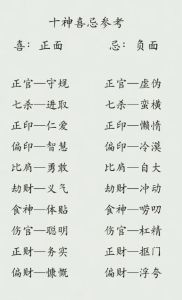 十神喜忌参考
喜：正面 忌：负面
正官—守规 正官—虚伪
七杀—进取 七杀—蛮横
正印—仁爱 正印—懒惰
偏印—智慧 偏印—冷漠
比肩—勇敢 比肩—自大
劫财—义气 劫财—冲动
食神—体贴 食神—唠叨
伤官—聪明 伤官—杠精
正财—务实 正财—抠门
偏财—慷慨 偏财—浮夸